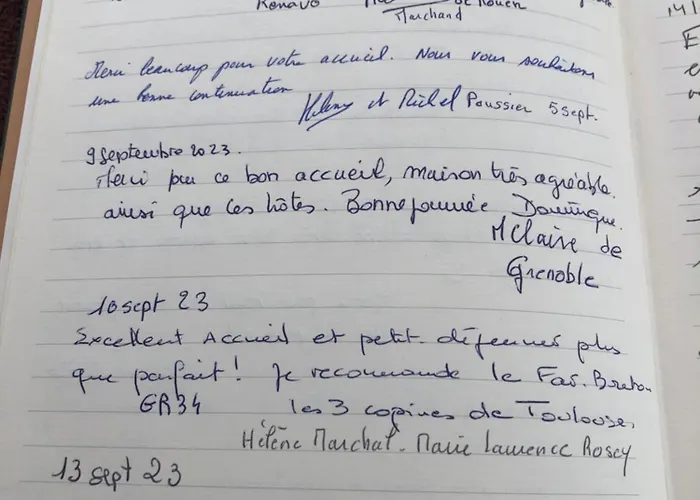 de Rouen
Marchand
Merci beaucoup pour votre accueil. Nous vous souhaitons
une bonne continuation
et Michel Poussier 5 sept.
9 septembre 2023.
Merci pour ce bon accueil, maison très agréable.
ainsi que les hôtes. Bonne journée Dominique.
M Claire de
Grenoble
10 sept 23
Excellent Accueil et petit-déjeuner plus
que parfait! Je recommande le Far-Breton
GR34 les 3 copines de Toulouse.
Hélène Marchal. Marie Laurence Rosey
13 sept 23